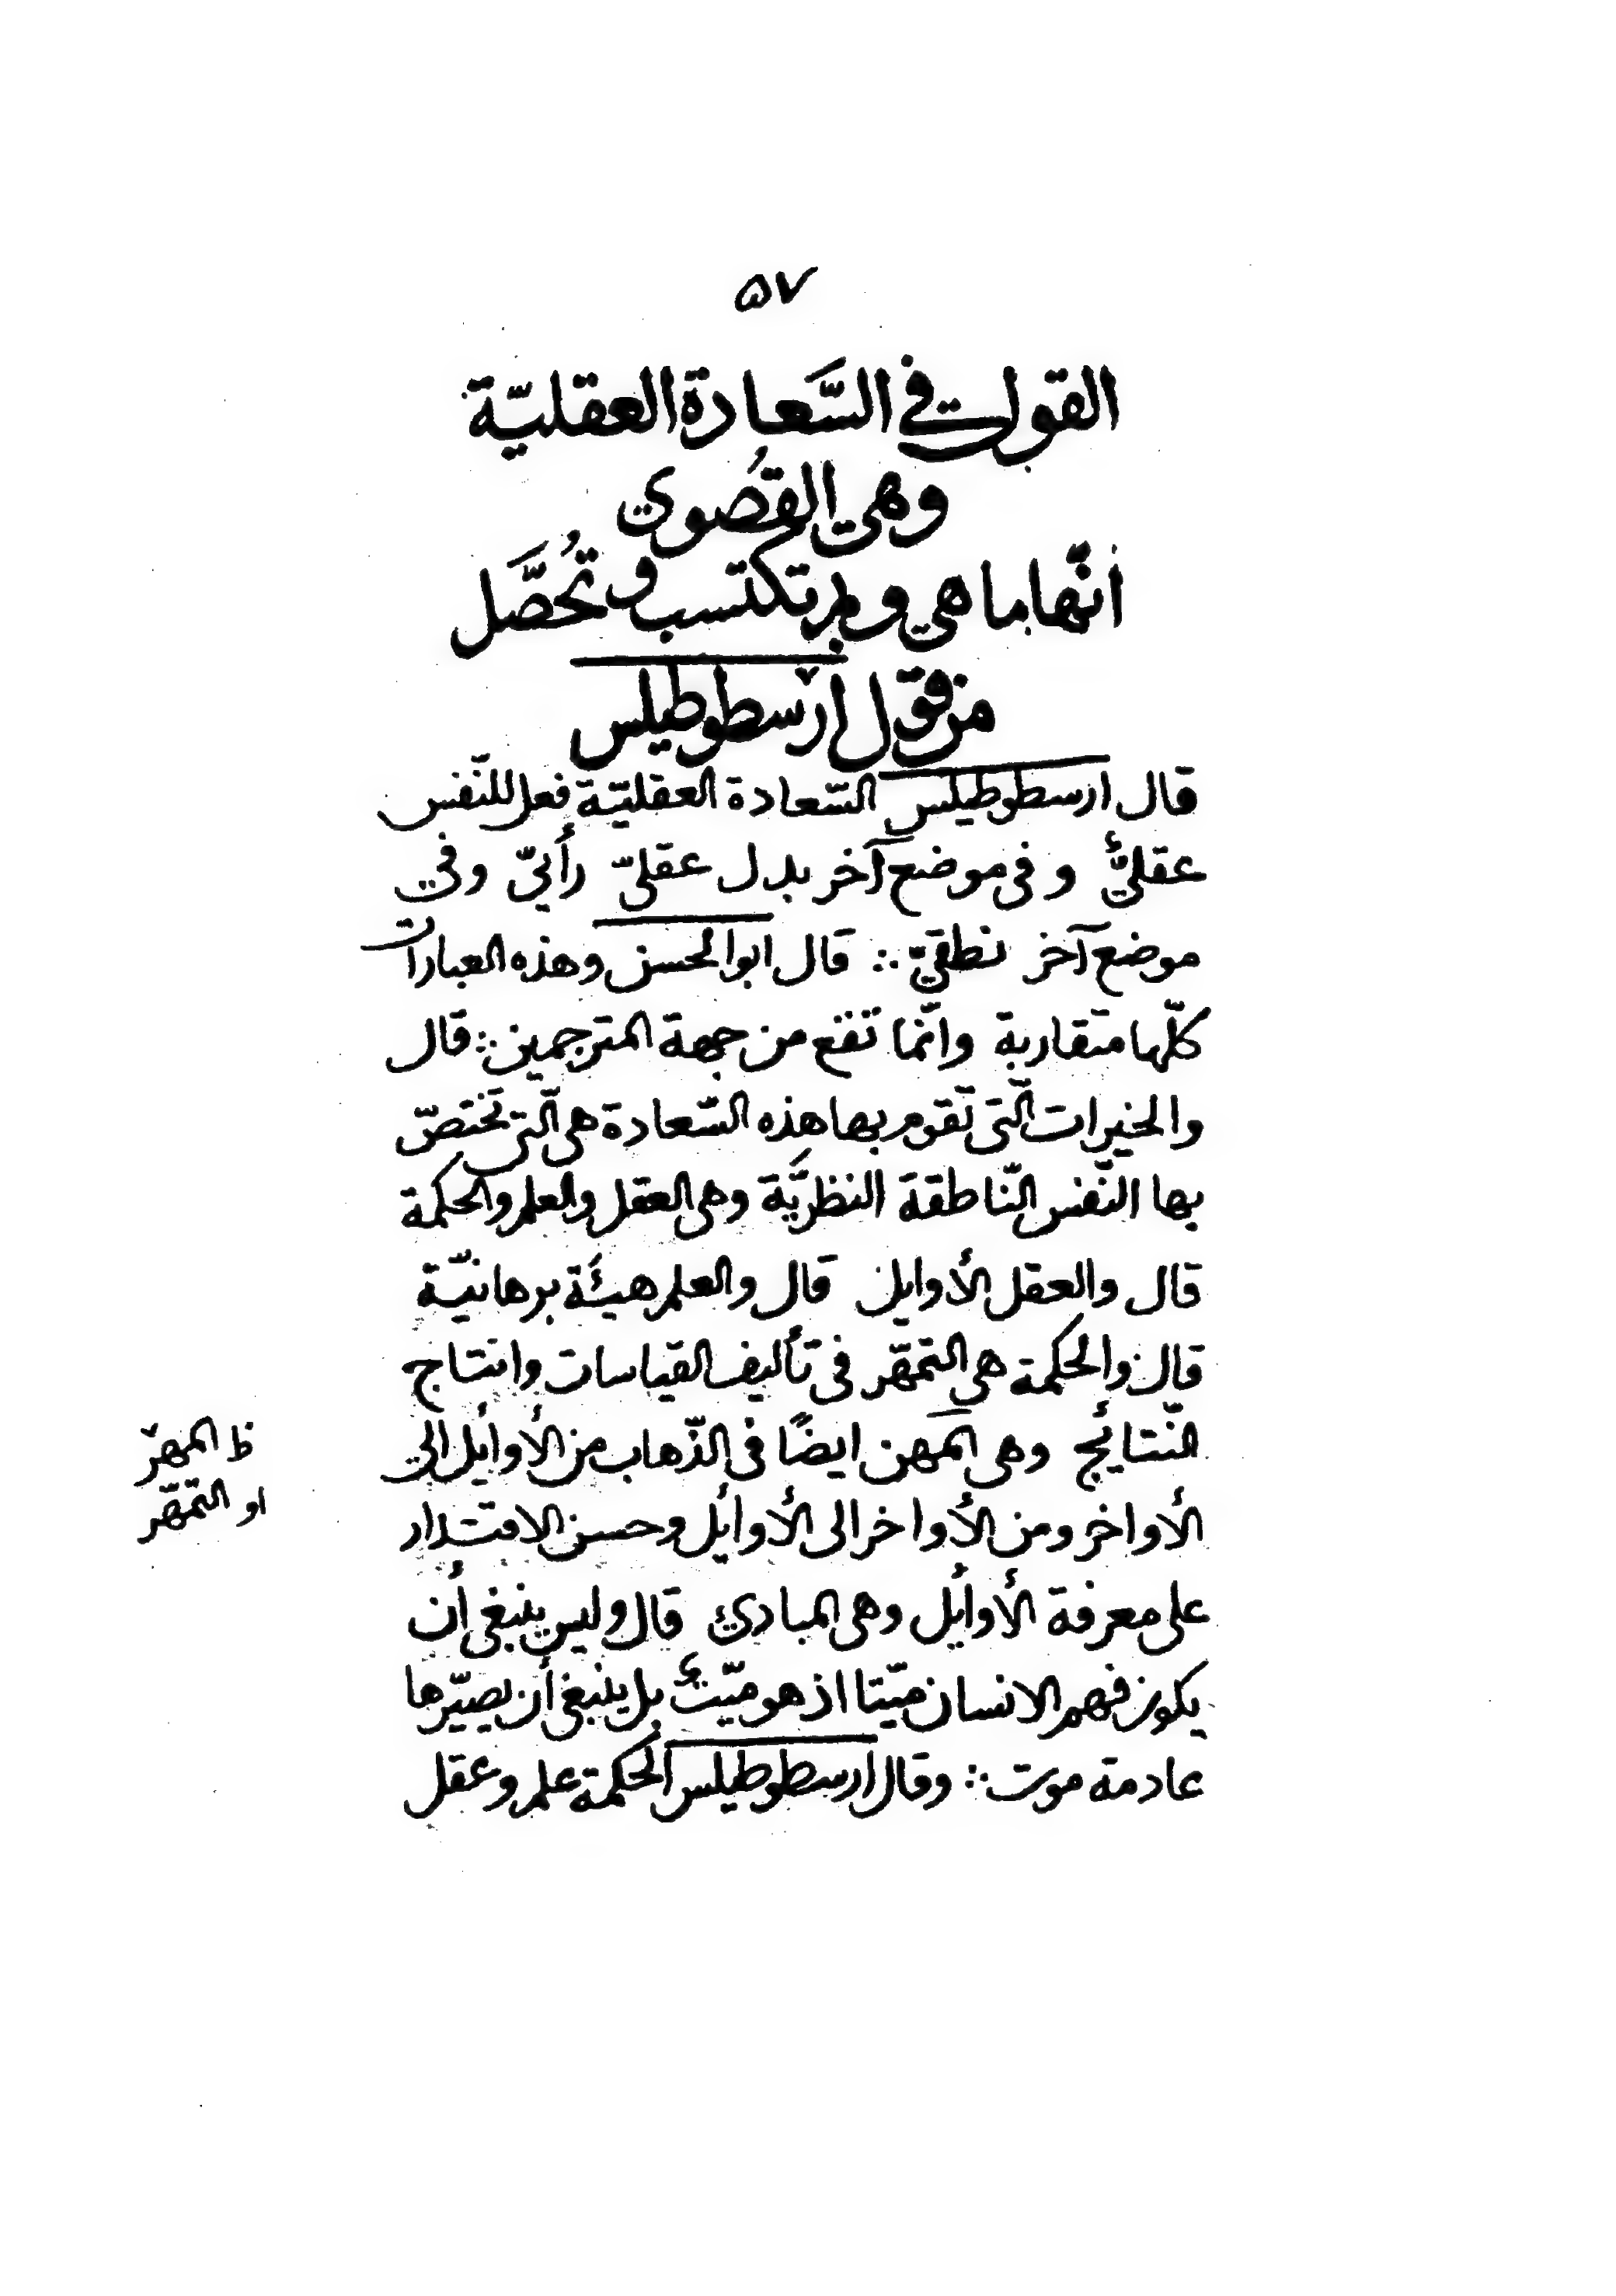 ۵۷
القول في السَّعادة العقليّة
وهي القُصوى
أنّها ما هي وبم تكتسب وتُحصَّل
من قول ارسطوطيلس
قال ارسطوطيلس السّعادة العقليّة فعل للنّفس
عقليٌّ وفى موضع آخر بدل عقليّ رأييّ وفي
موضع آخر نطقيّ ∴ قال ابو الحسن وهذه العبارات
كلّها متقاربة وانّما تقع من جهة المترجمين ∴ قال
والخيرات الّتى تقوم بها هذه السّعادة هى الّتى تختصّ
بها النّفس النّاطقة النظريَّة وهى العقل والعلم والحكمة
قال والعقل الأوايل قال والعلم هيئَة برهانيّة
قال والحكمة هى التمهّر فى تأليف القياسات وانتاج
النّتائج وهى المهن ايضًا فى الذّهاب من الأوائل الى
الأواخر ومن الأواخر الى الأوائل وحسن الاقتدار
على معرفة الأوائل وهى المبادئ قال وليس ينبغى أن
يكون فهم الانسان ميّتا اذ هو ميّت بل ينبغى أن يصيّرها
عادمة موت ∴ وقال ارسطوطيلس الحكمة علم وعقل
ظ المهر
او التمهّر